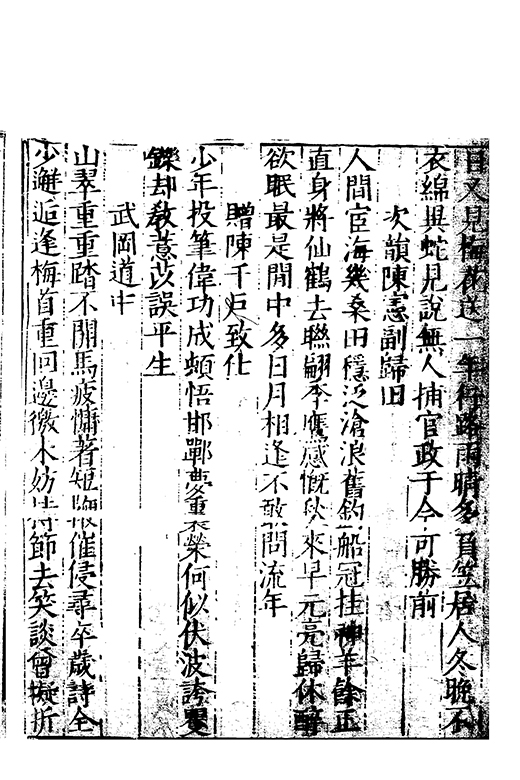 日又見梅花送一年行路雨晴多負笠居人冬晚不
衣綿異蛇見說無人捕官政于今可勝前
次韻陳憲副歸田
人間宦海幾桑田穩泛滄浪舊釣船冠挂神羊餘正
直身將仙鶴去聯翩季鷹感慨秋來早元亮歸休醉
欲眠最是閒中多日月相逢不敢問流年
贈陳千戶致仕
少年投筆偉功成頓悟邯鄲夢裏榮何似伏波誇矍
鑠却教薏苡誤平生
武岡道中
山翠重重踏不開馬疲慵著短鞭催侵尋卒歲詩全
少邂逅逢梅首重回邊徼木妨持節去笑談曾擬折